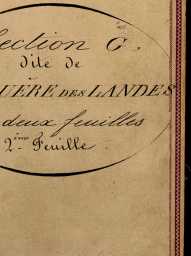 Section C.
dite de
UÈRE DES LANDES
deux feuilles
2ème Feuille